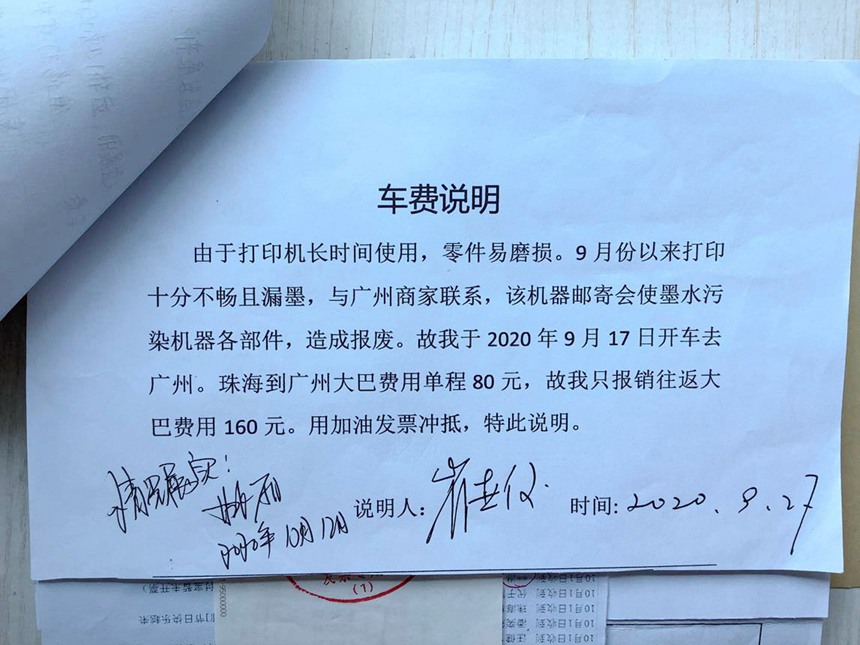 车费说明
由于打印机长时间使用，零件易磨损。9 月份以来打印
十分不畅且漏墨，与广州商家联系，该机器邮寄会使墨水污
染机器各部件，造成报废。故我于 2020 年 9 月 17 日开车去
广州。珠海到广州大巴费用单程 80 元，故我只报销往返大
巴费用 160 元。用加油发票冲抵，特此说明。
情况属实！
说明人：
时间: 2020.9.27
2020年10月12日
(1)